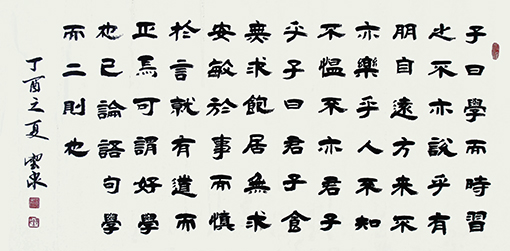 子曰學而時習
之不亦說乎有
朋自遠方來不
亦樂乎人不知
不慍不亦君子
乎子曰君子食
無求飽居無求
安敏於事而慎
於言就有道而
正焉可謂好學
也已論語句學
而二則也
丁酉之夏雲泉